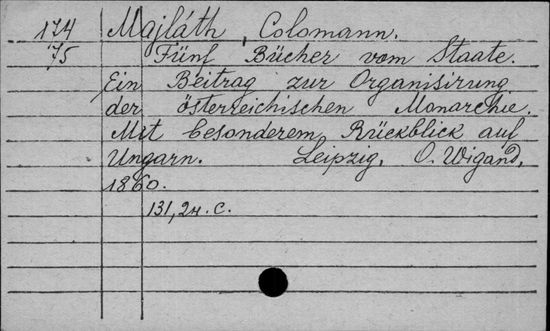 174 Majláth, Colomann.
75 Fünf Bücher vom Staate.
Ein Beitrag zur Organisirung
der österreichischen Monarchie.
Mit besonderem Rückblick auf
Ungarn. Leipzig, O. Wigand,
1860.
131, 2 H. C.